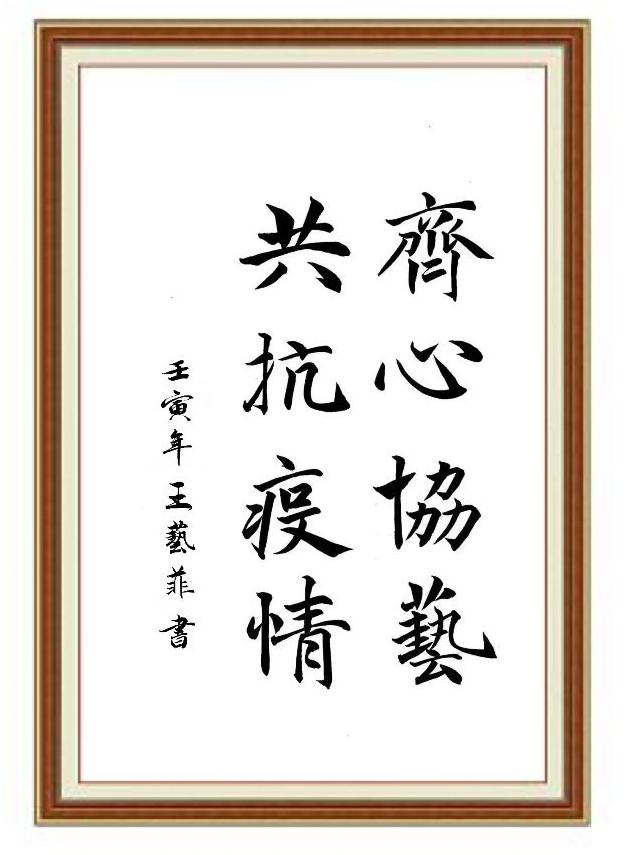 齊心協藝
共抗疫情
壬寅年王藝菲書